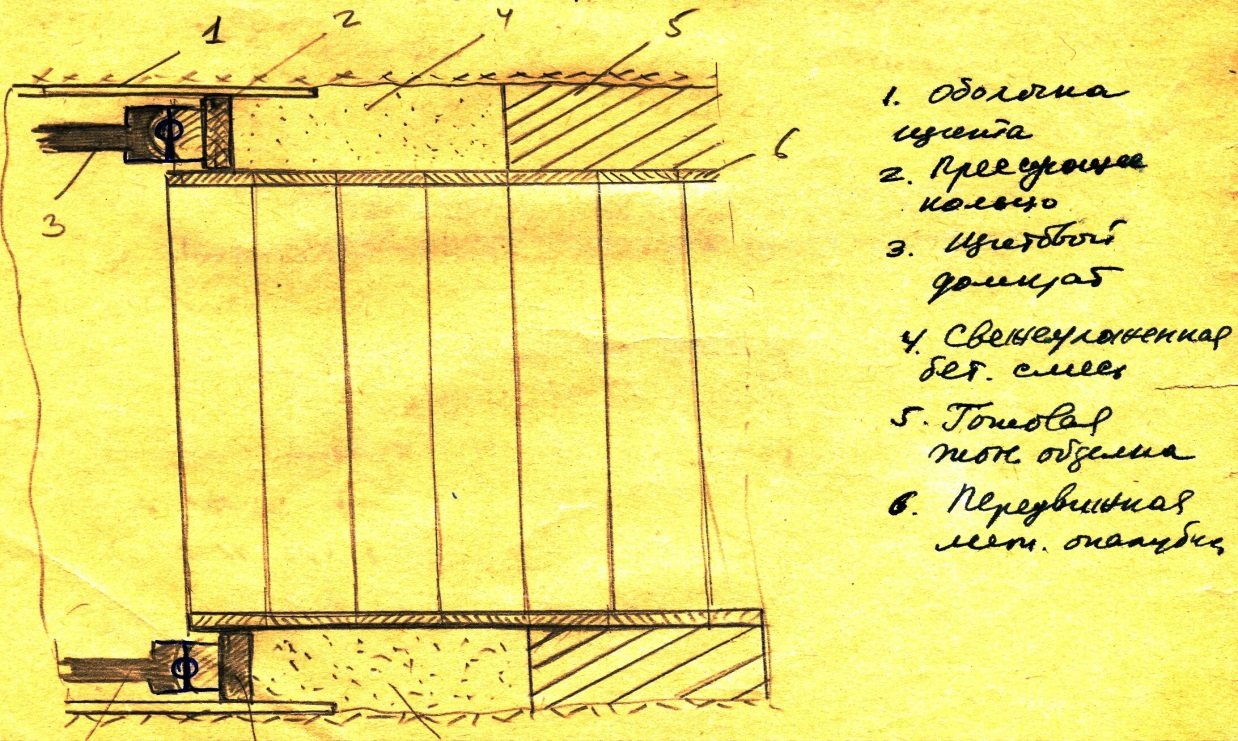 1 2 4 5
6
3
1. Оболочка
щита
2. Прессующее
кольцо
3. Щитовой
домкрат
4. Свежеуложенная
бет. смесь
5. Готовая
мон. обделка
6. Передвижная
мет. опалубка